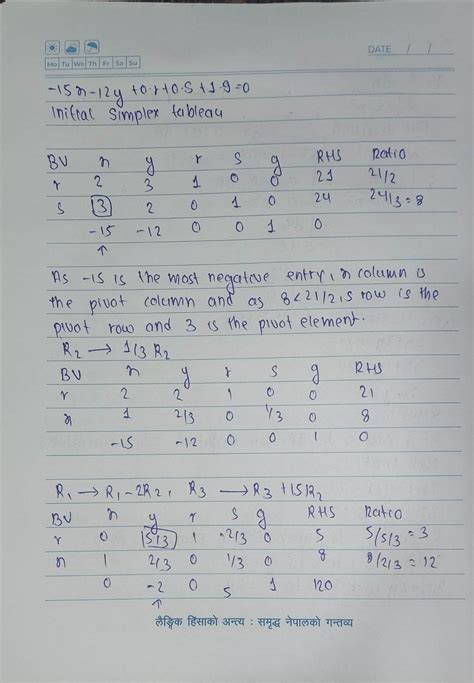 DATE / /
Mo Tu We Th Fr Sa Su
-15x-12y+0·r+0·s+1·g=0
Initial Simplex tableau
BV x y r s g RHS Ratio
r 2 3 1 0 0 21 21/2
s 3 2 0 1 0 24 24/3=8
-15 -12 0 0 1 0
↑
As -15 is the most negative entry, x column is
the pivot column and as 8<21/2, s row is the
pivot row and 3 is the pivot element.
R2 → 1/3 R2
BV x y r s g RHS
r 2 2 1 0 0 21
x 1 2/3 0 1/3 0 8
-15 -12 0 0 1 0
R1 → R1-2R2, R3 → R3+15R2
BV x y r s g RHS Ratio
r 0 5/3 1 -2/3 0 5 5/5/3=3
x 1 2/3 0 1/3 0 8 8/2/3=12
0 -2 0 5 1 120
↑
लैङ्गिक हिंसाको अन्त्य : समृद्ध नेपालको गन्तव्य